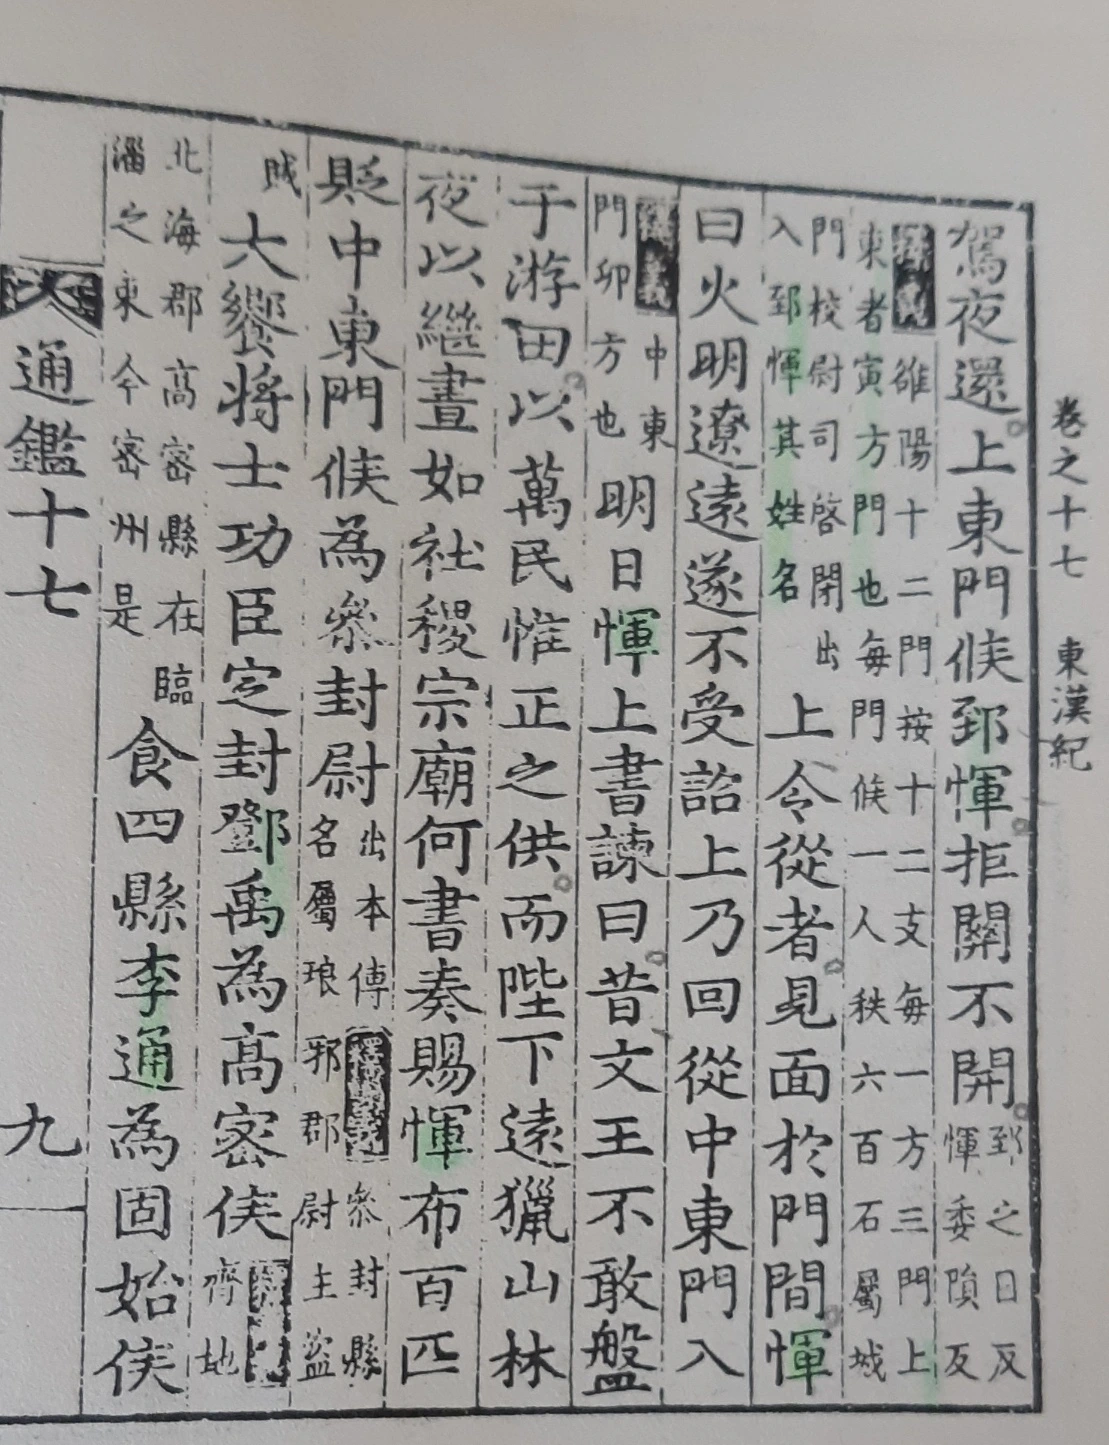 卷之十七 東漢紀
駕夜還上東門候郅惲拒關不開郅之日反惲委隕反
釋義雒陽十二門按十二支每一方三門上東者寅方門也每門候一人秩六百石屬城
門校尉司啓閉出入郅惲其姓名上令從者見面於門間惲
曰火明遼遠遂不受詔上乃回從中東門入
釋義中東門卯方也明日惲上書諫曰昔文王不敢盤
于游田以萬民惟正之供而陛下遠獵山林
夜以繼晝如社稷宗廟何書奏賜惲布百匹
貶中東門候為參封尉出本傳釋義參封縣名屬琅邪郡尉主盜
賊大饗將士功臣定封鄧禹為高密侯釋義齊地
北海郡高密縣在臨淄之東今密州是食四縣李通為固始侯
通鑑十七 九